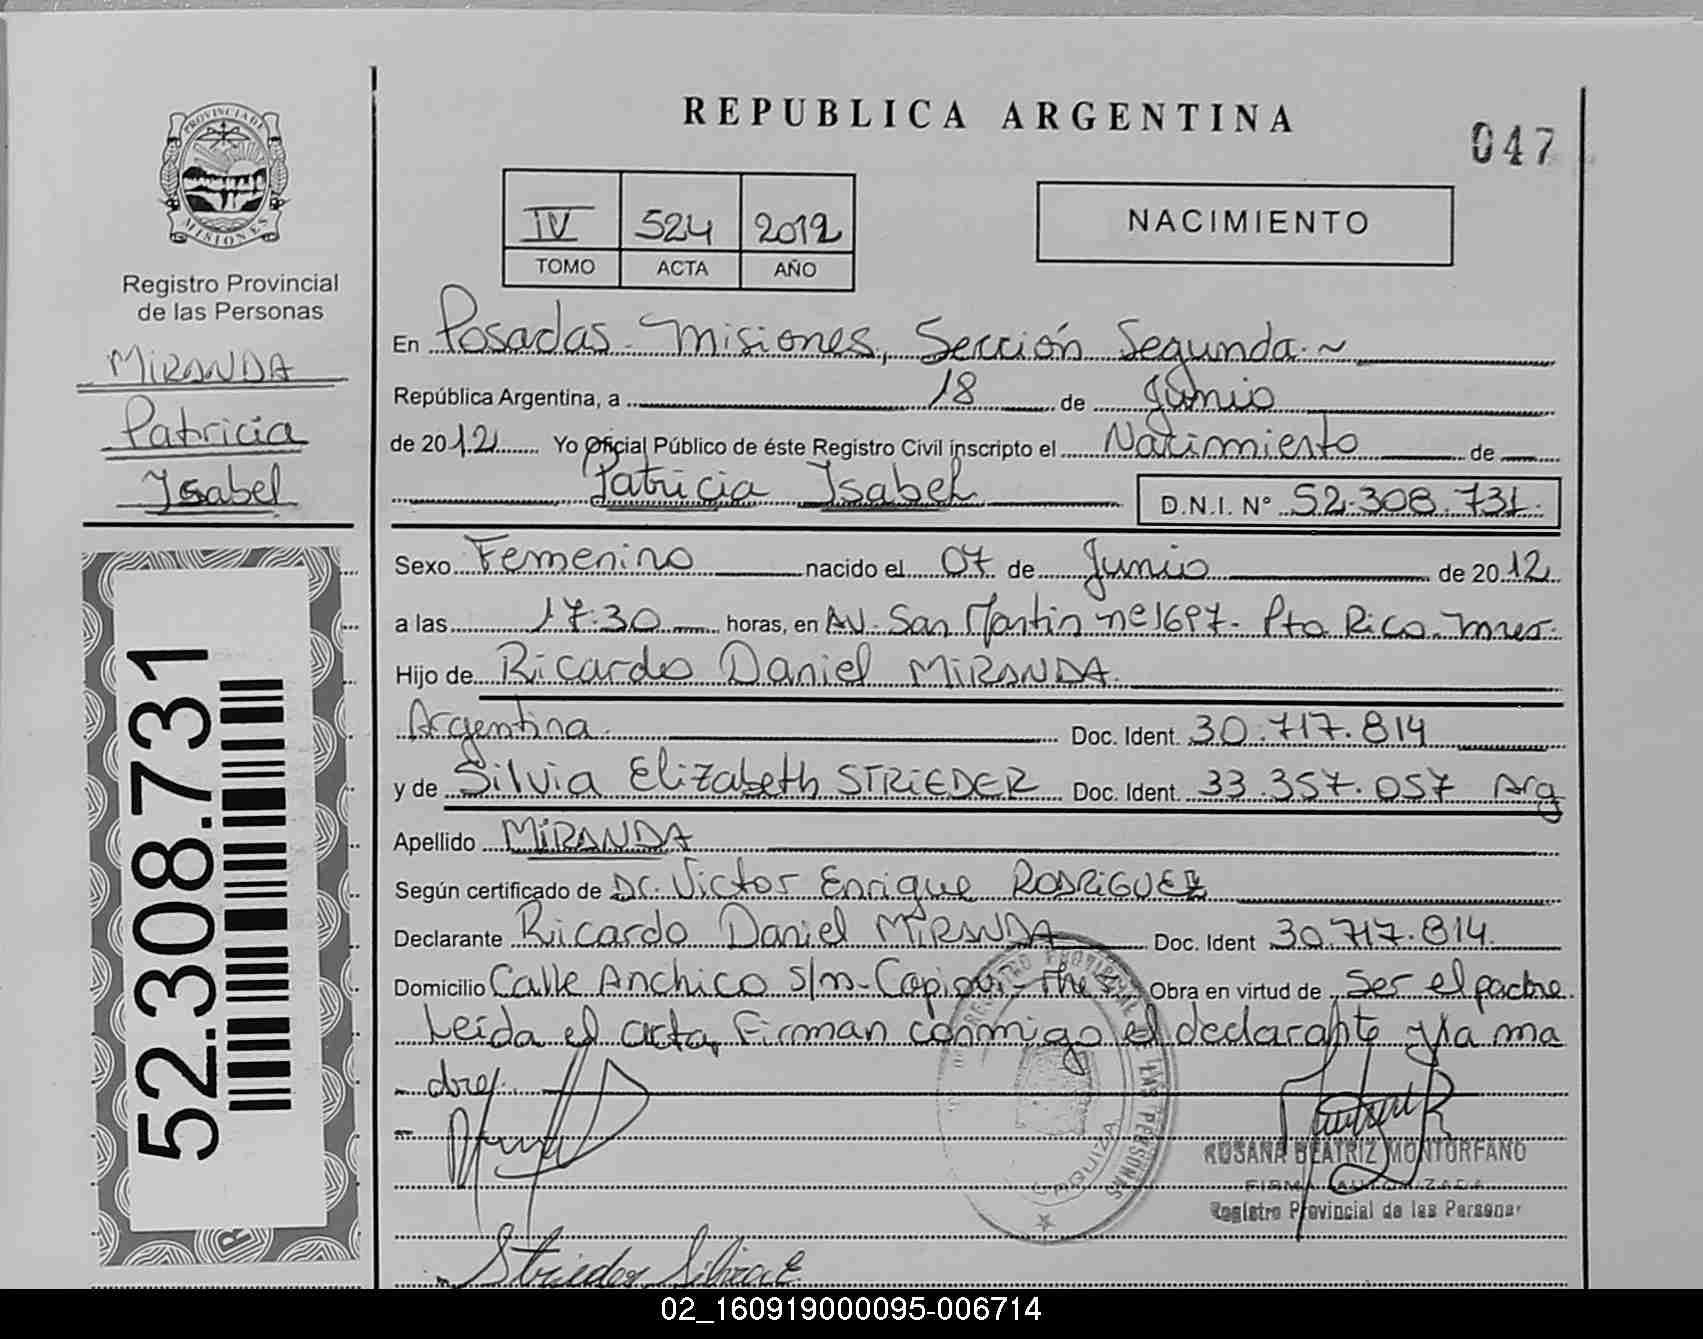 REPUBLICA ARGENTINA
047
PROVINCIA DE
MISIONES
Registro Provincial
de las Personas
MIRANDA
Patricia
Isabel
IV 524 2012
TOMO ACTA AÑO
NACIMIENTO
En Posadas - Misiones, Sección Segunda.~
República Argentina, a 18 de Junio
de 2012 Yo Oficial Público de éste Registro Civil inscripto el Nacimiento de
Patricia Isabel D.N.I. N° 52.308.731.
Sexo Femenino nacido el 07 de Junio de 2012
a las 17:30 horas, en AV. San Martin nº 1697- Pto Rico. Mnes.
Hijo de Ricardo Daniel MIRANDA.
Argentina. Doc. Ident. 30.717.814
y de Silvia Elizabeth STRIEDER Doc. Ident. 33.357.057 Arg
Apellido MIRANDA
Según certificado de Dr. Victor Enrique RODRIGUEZ
Declarante Ricardo Daniel MIRANDA Doc. Ident 30.717.814.
Domicilio Calle Anchico S/n - Capiovi - Obra en virtud de Ser el padre
Leida el acta, Firman conmigo el declarante y la ma
dre.
52.308.731
REGISTRO PROVINCIAL DE LAS PERSONAS
ROSANA BEATRIZ MONTORFANO
FIRMA AUTORIZADA
Registro Provincial de las Personas
Strieder Silvia E
02_160919000095-006714